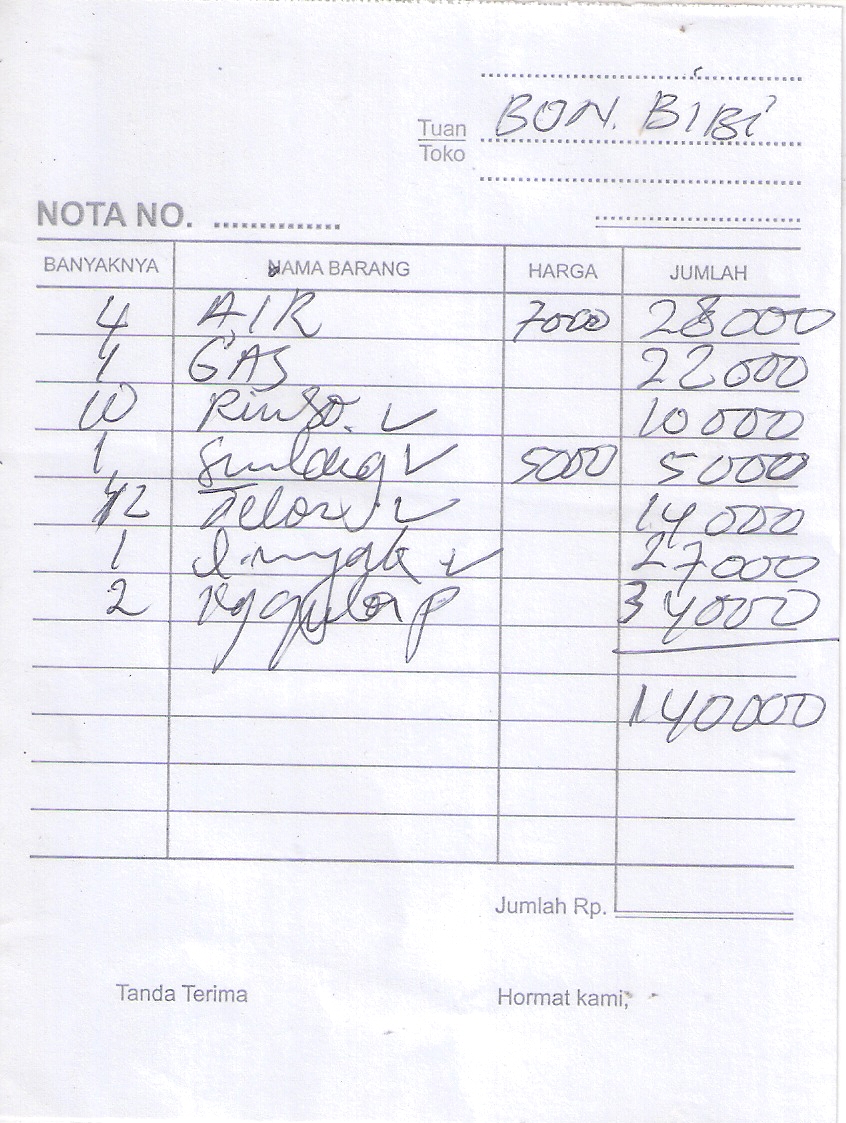 BON. BiBi
Tuan
Toko
NOTA NO.
BANYAKNYA NAMA BARANG HARGA JUMLAH
4 AIR 7000 28000
1 GAS 22000
10 Rinso. ✓ 10000
1 Sunlaig ✓ 5000 5000
1/2 Telor ✓ 14000
1 l. minyak ✓ 27000
2 Kg gula P 34000
140000
Jumlah Rp.
Tanda Terima Hormat kami,